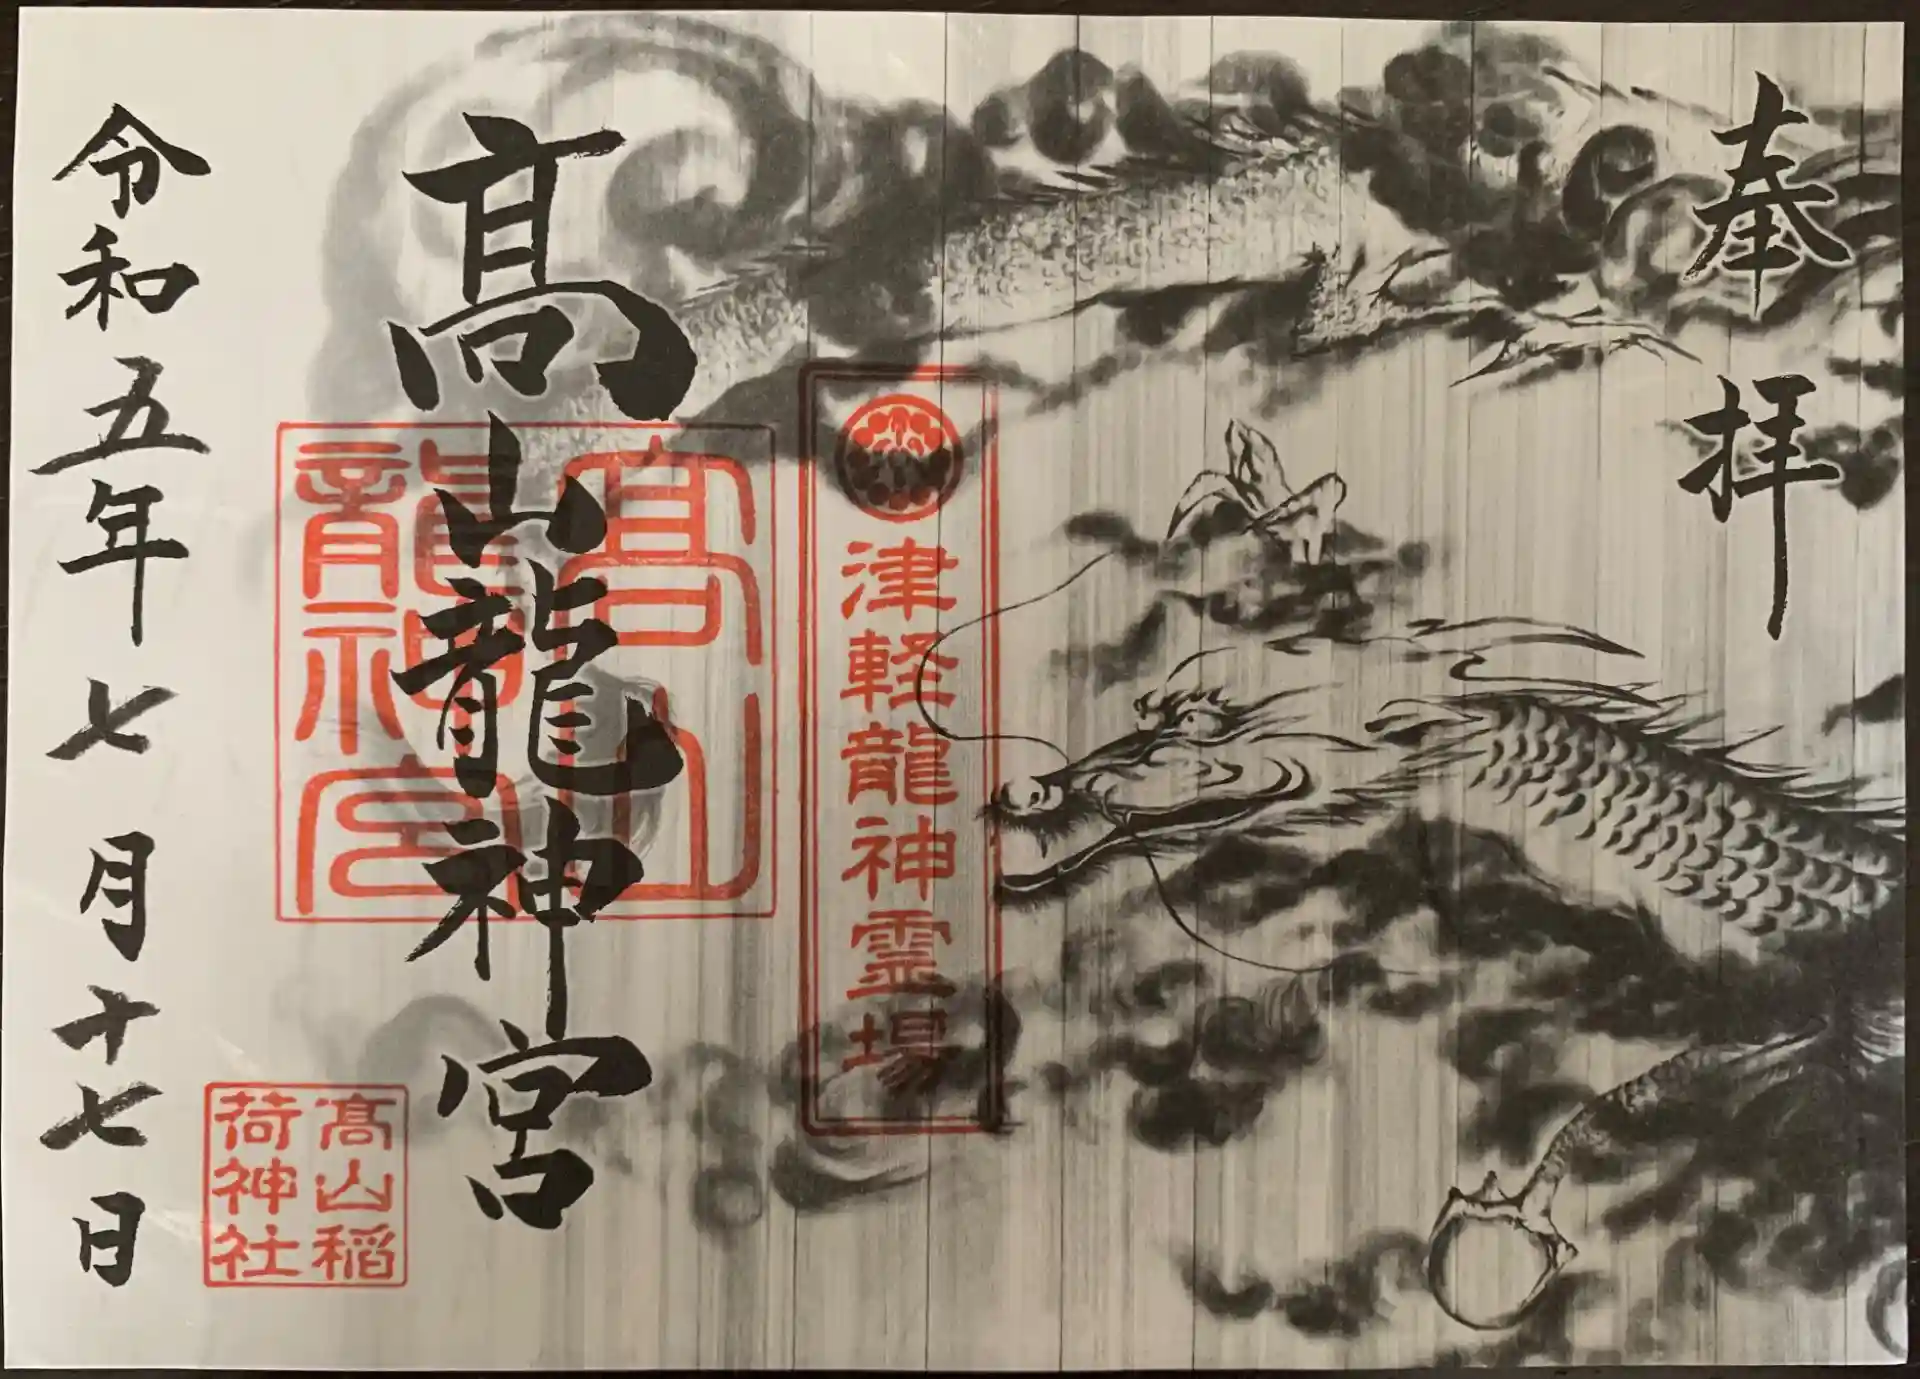 奉拝
津軽龍神霊場
髙山龍神宮
髙山
龍神宮
髙山稲
荷神社
令和五年七月十七日